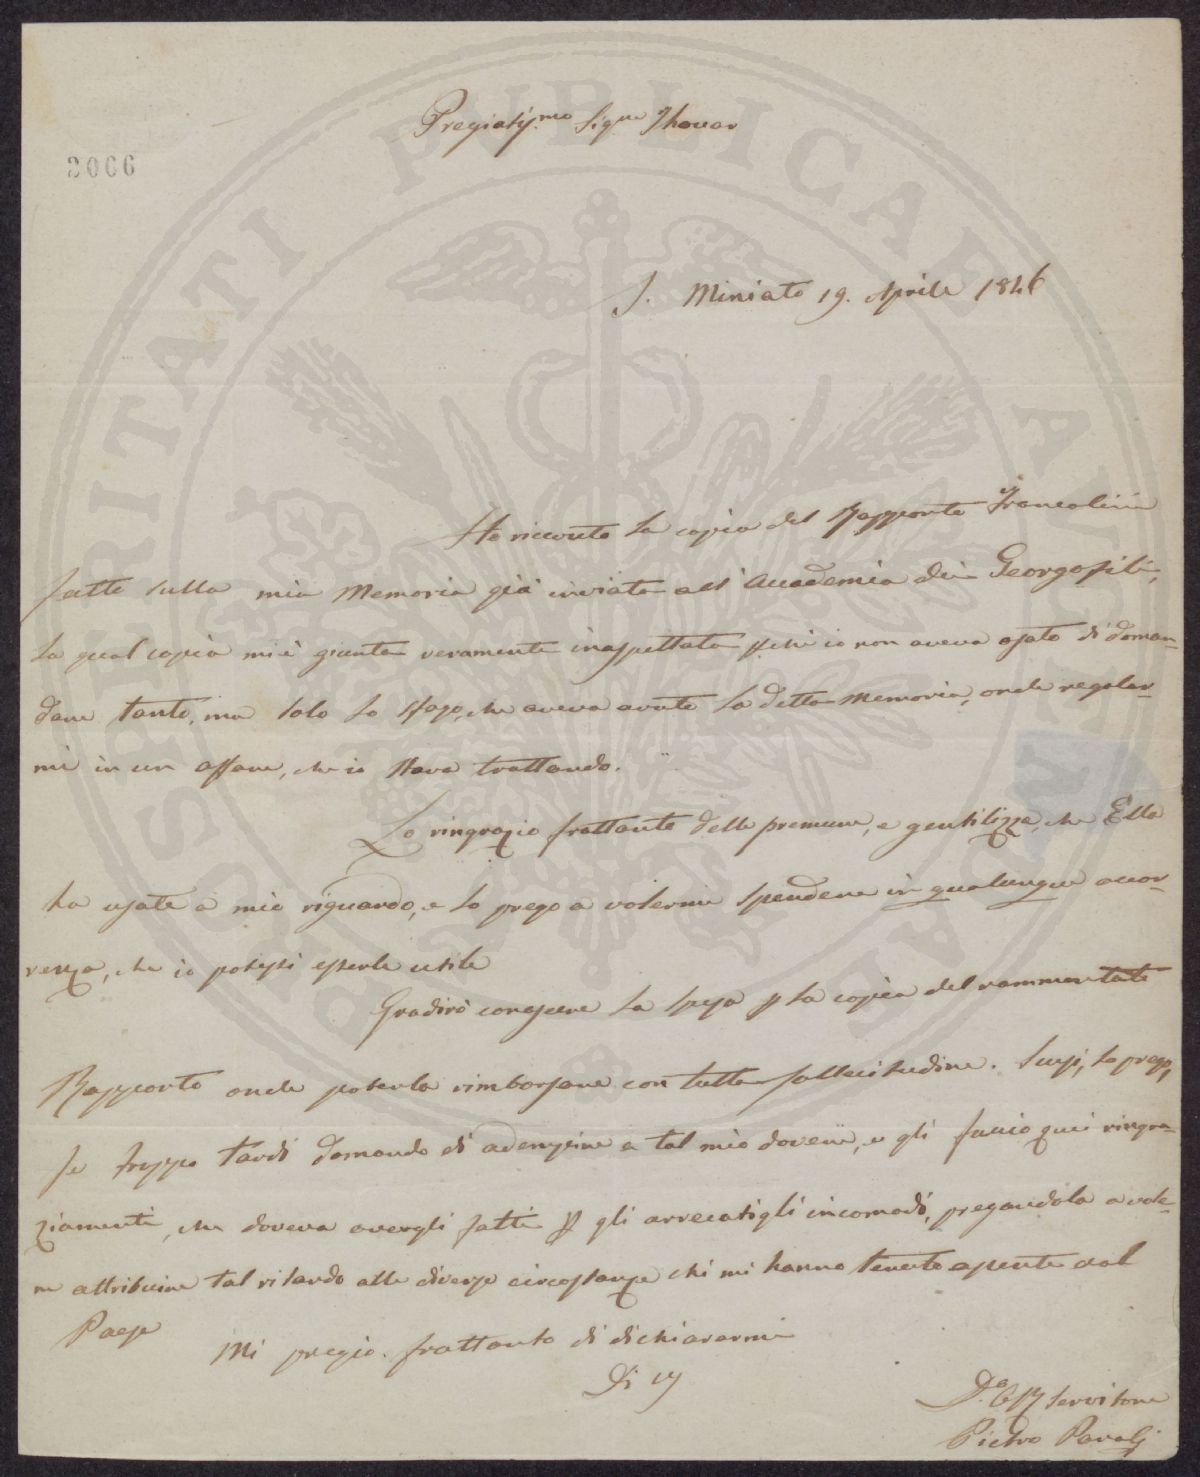 Pregiatis.mo Sig.re Thouar
2066
S. Miniato 19. Aprile 1846
Ho ricevuto la copia del Rapporto Francolini
fatto sulla mia Memoria già inviata all' Accademia dei Georgofili,
la qual copia mi è giunta veramente inaspettata pchè io non aveva osato di doman-
dare tanto, ma solo lo sfogo, che aveva avuto la detta Memoria, onde regolar-
mi in un affare, che io stava trattando.
La ringrazio frattanto delle premure, e gentilezze, che Ella
ha usate a mio riguardo, e la prego a volermi spendere in qualunque occor-
renza, che io potessi esserle utile
Gradirò conoscere la spesa p la copia del rammentato
Rapporto onde poterla rimborsare con tutta sollecitudine. Scusi, la prego,
se troppo tardi domando di adempire a tal mio dovere, e gli faccio quei ringra-
ziamenti, che doveva avergli fatti p gli arrecatigli incomodi, pregandola a vole-
re attribuire tal ritardo alle diverse circostanze che mi hanno tenuto assente dal
Paese
Mi pregio frattanto di dichiararmi
Di
servitore
Pietro
PROSPERITATI PUBLICAE AUGENDAE